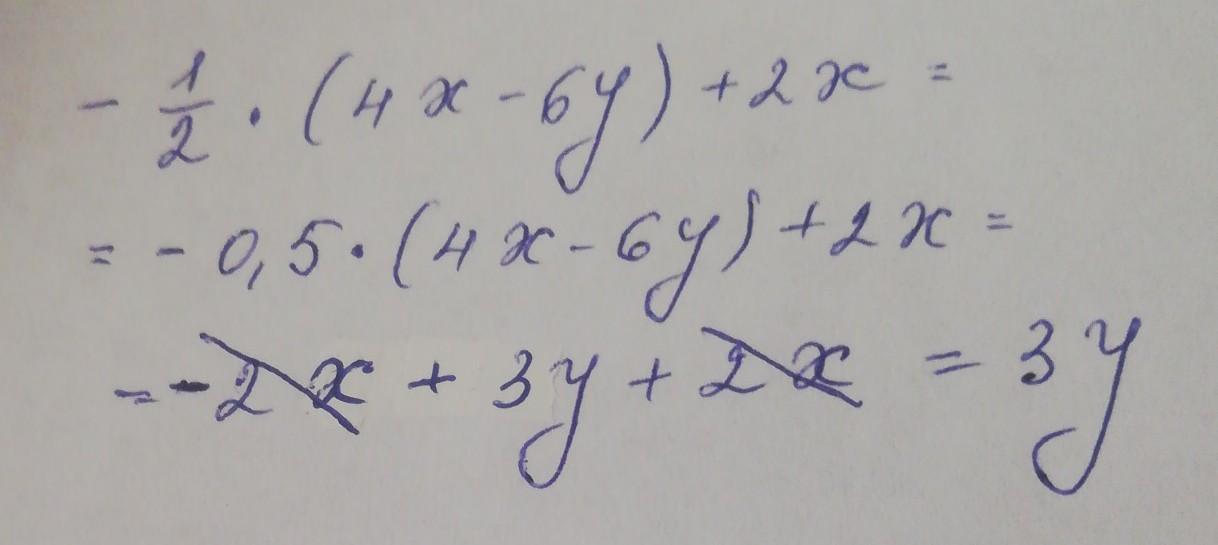 - 1/2 · (4x - 6y) + 2x =
= - 0,5 · (4x - 6y) + 2x =
= - 2x + 3y + 2x = 3y